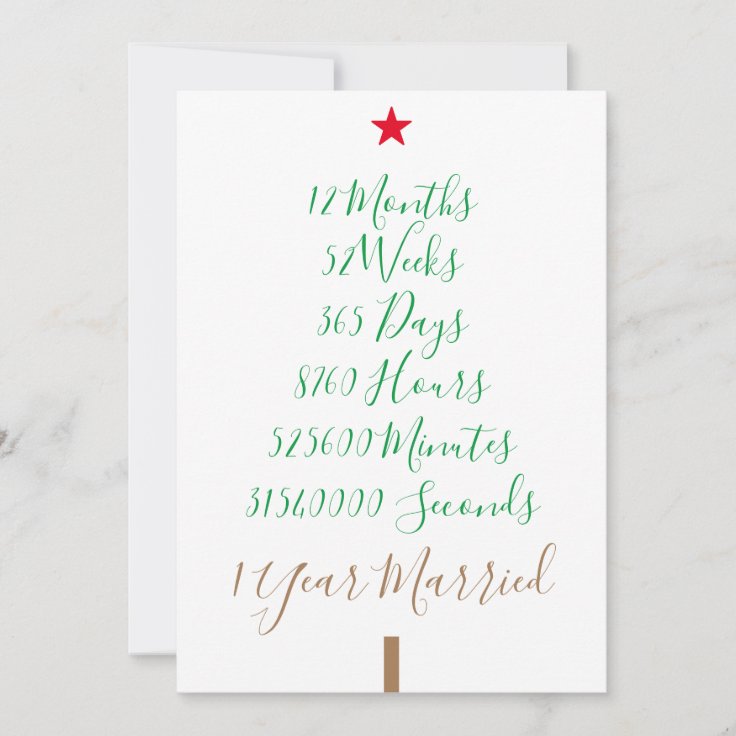 12 Months
52 Weeks
365 Days
8760 Hours
525600 Minutes
31540000 Seconds
1 Year Married